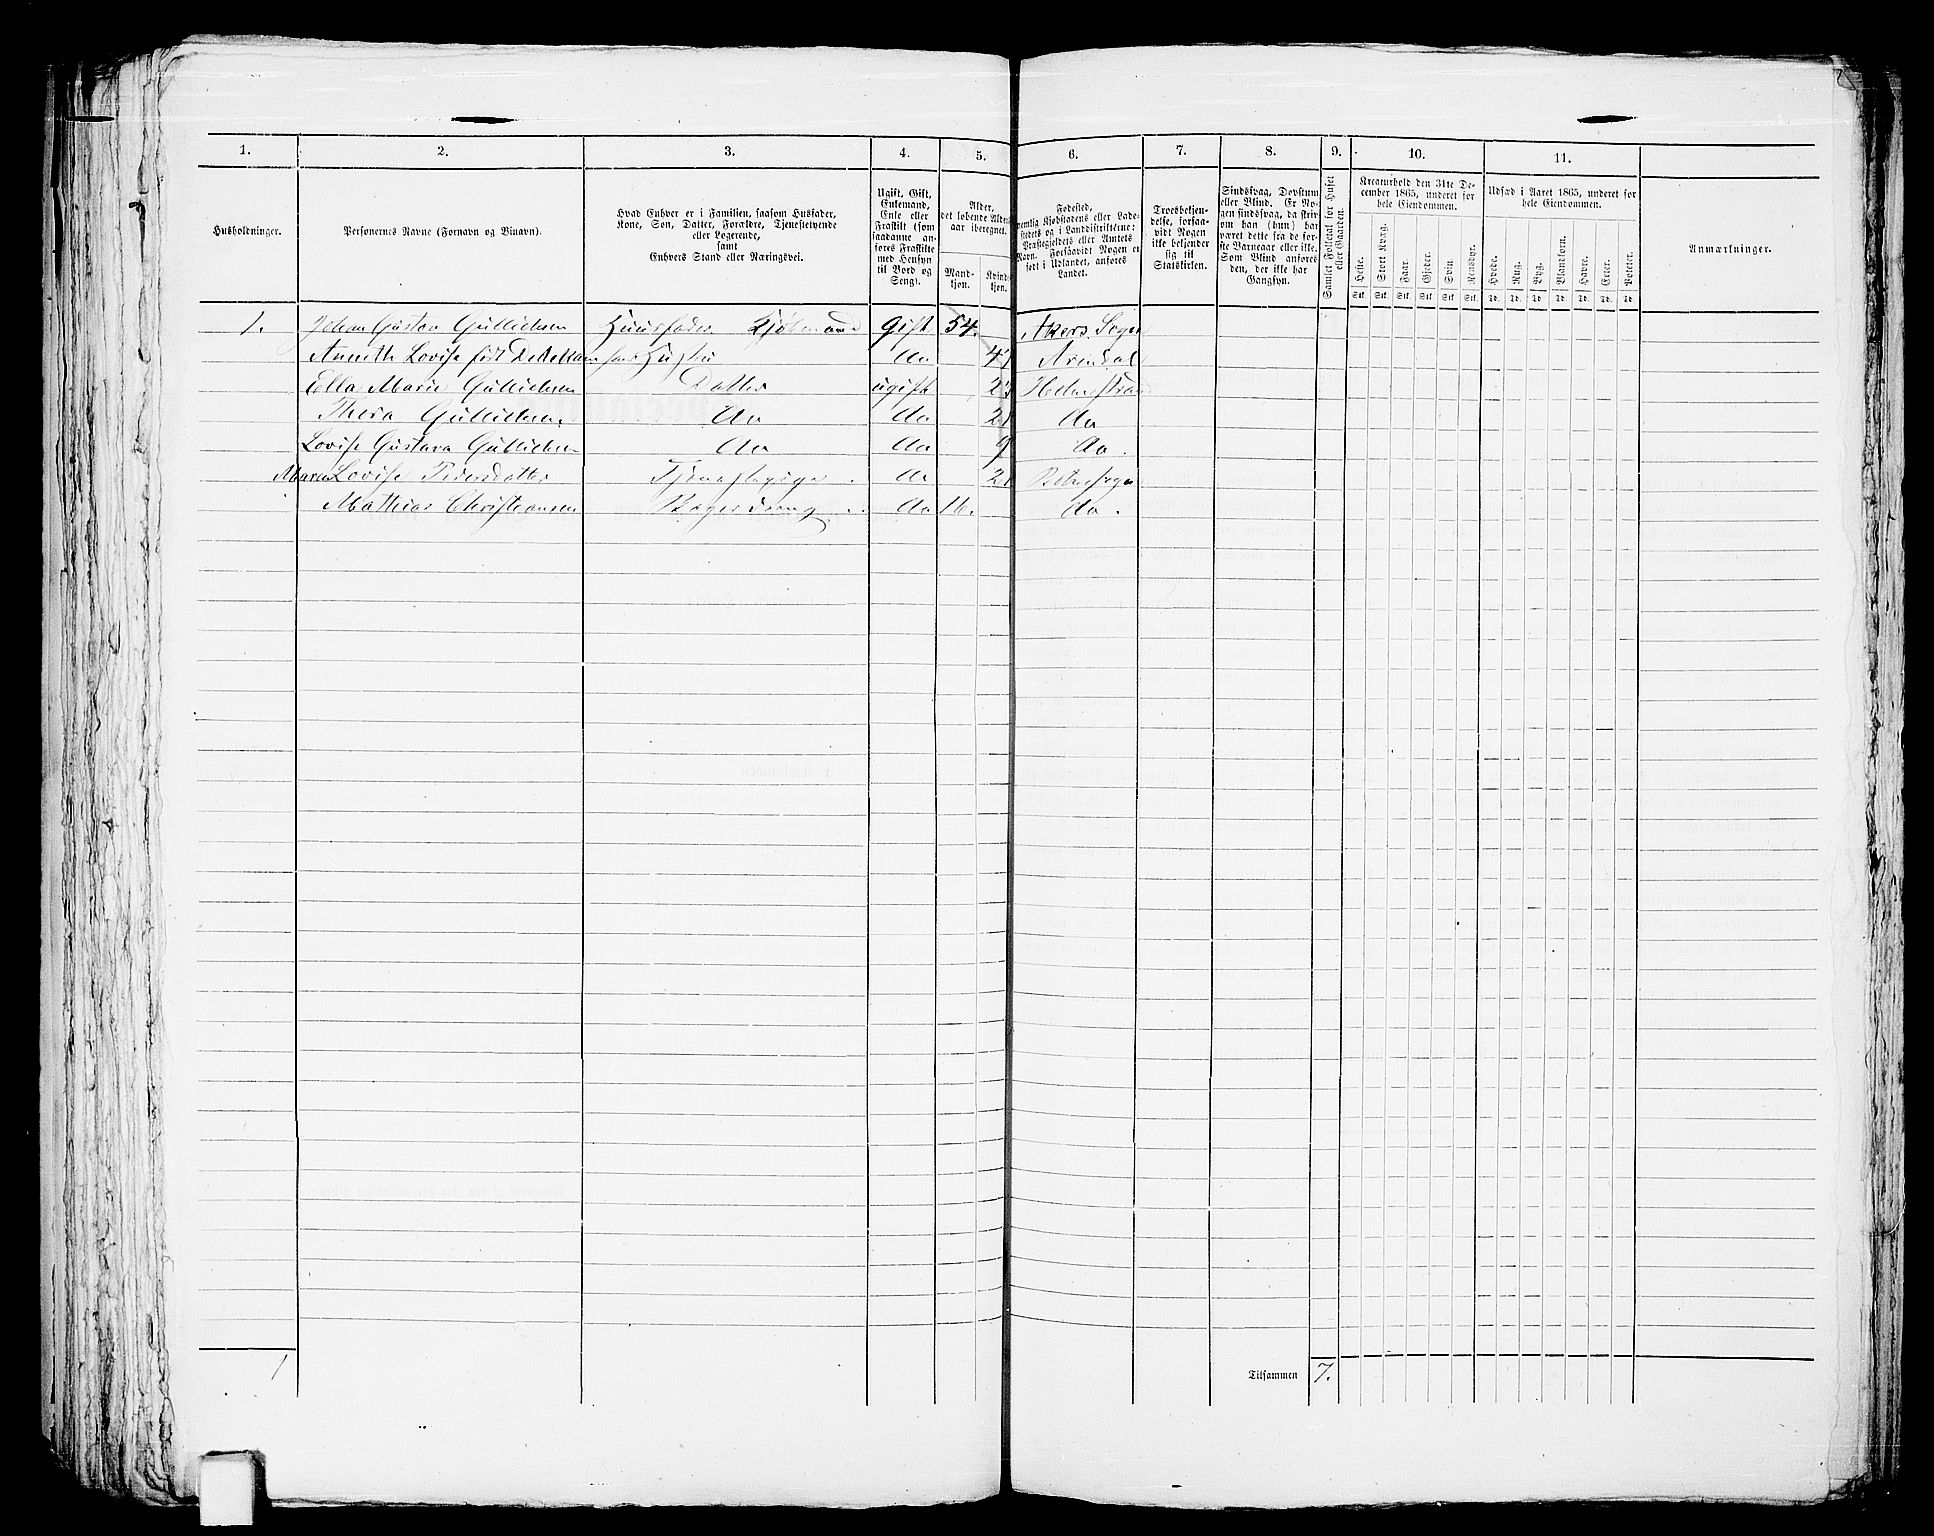 1. 2. 3. 4. 5. 6. 7. 8. 9. 10. 11.
Husholdninger.
Personernes Navne (Fornavn og Binavn).
Hvad Enhver er i Familien, saasom Husfader,
Kone, Søn, Datter, Forældre, Tjenestetyende
eller Logerende,
samt
Enhvers Stand eller Næringsvei.
Ugift, Gift,
Enkemand,
Enke eller
Fraskilt (som
saadanne an-
føres Fraskilte
med Hensyn
til Bord og
Seng).
Alder,
det løbende Alders-
aar iberegnet.
Mand-
kjøn.
Kvind-
kjøn.
Fødested,
nemlig Kjøbstadens eller Lade-
stedets og i Landdistrikterne:
Præstegjeldets eller Amtets
Navn. Forsaavidt Nogen er
født i Udlandet, anføres
Landet.
Troesbekjen-
delse, forsaa-
vidt Nogen
ikke bekjender
sig til
Statskirken.
Sindssvag, Døvstum
eller Blind. Er No-
gen sindssvag, da skriv
om han (hun) har
været dette fra de før-
ste Barneaar eller ikke.
Som Blind anføres
den, der ikke har
Gangsyn.
Samlet Folketal for Huset
eller Gaarden.
Kreaturhold den 31te De-
cember 1865, underet for
hele Eiendommen.
Heste. Stort Kvæg. Faar. Gjeder. Svin. Rensdyr.
Stk. Stk. Stk. Stk. Stk. Stk.
Udsæd i Aaret 1865, underet for
hele Eiendommen.
Hvede. Rug. Byg. Blandkorn. Havre. Erter. Poteter.
Td. Td. Td. Td. Td. Td. Td.
Anmærkninger.
1. Johan Gustav Gullichsen Huusfader Kjøbmand gift 54. Akers Sogn
Anneth Lovise født Hustru do 47 Arendal
Ella Marie Gullichsen Datter ugift Holmestrand
Thora Gullichsen do do 21 do
Lovise Gustava Gullichsen do do 9 do.
Maren Lovise Pedersdatter Tjenestepige. do 21 Botne Sogn
Mathias Christiansen do 16. do.
1 Tilsammen 7.